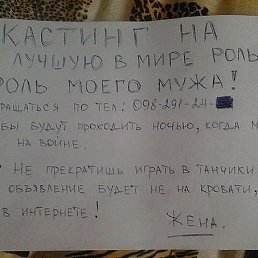 КАСТИНГ НА
ЛУЧШУЮ В МИРЕ РОЛЬ
РОЛЬ МОЕГО МУЖА!
РАЩАТЬСЯ ПО ТЕЛ: 098-291-24-
БЫ БУДУТ ПРОХОДИТЬ НОЧЬЮ, КОГДА М
НА ВОЙНЕ.
НЕ ПРЕКРАТИШЬ ИГРАТЬ В ТАНЧИКИ
ОБЪЯВЛЕНИЕ БУДЕТ НЕ НА КРОВАТИ,
В ИНТЕРНЕТЕ!
ЖЕНА.